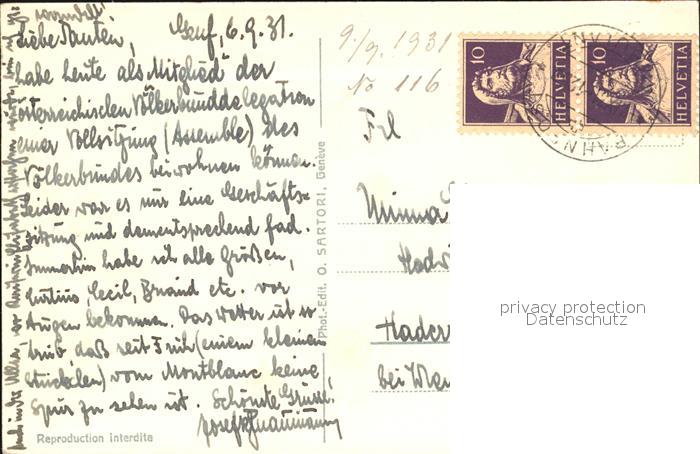 Genf, 6.9.31.
Liebe Tanten,
habe heute als Mitglied der
österreichischen Völkerbunddelegation
einer Vollsitzung (Assemblee) des
Völkerbundes beiwohnen können.
Leider war es nur eine Geschäfts-
sitzung und dementsprechend fad.
Immerhin habe ich alle Größen,
Curtius, Cecil, Briand etc. vor
Augen bekommen. Das Wetter ist so
trüb daß seit Früh (einem kleinen
Stückchen) vom Montblanc keine
Spur zu sehen ist. Schönste Grüsse
Josef
Reproduction interdite
Phot.-Edit. O. SARTORI, Genève
9./9. 1931
No 116
Frl
Minna
Hader
bei
10 HELVETIA
10 HELVETIA
BAHN
privacy protection
Datenschutz